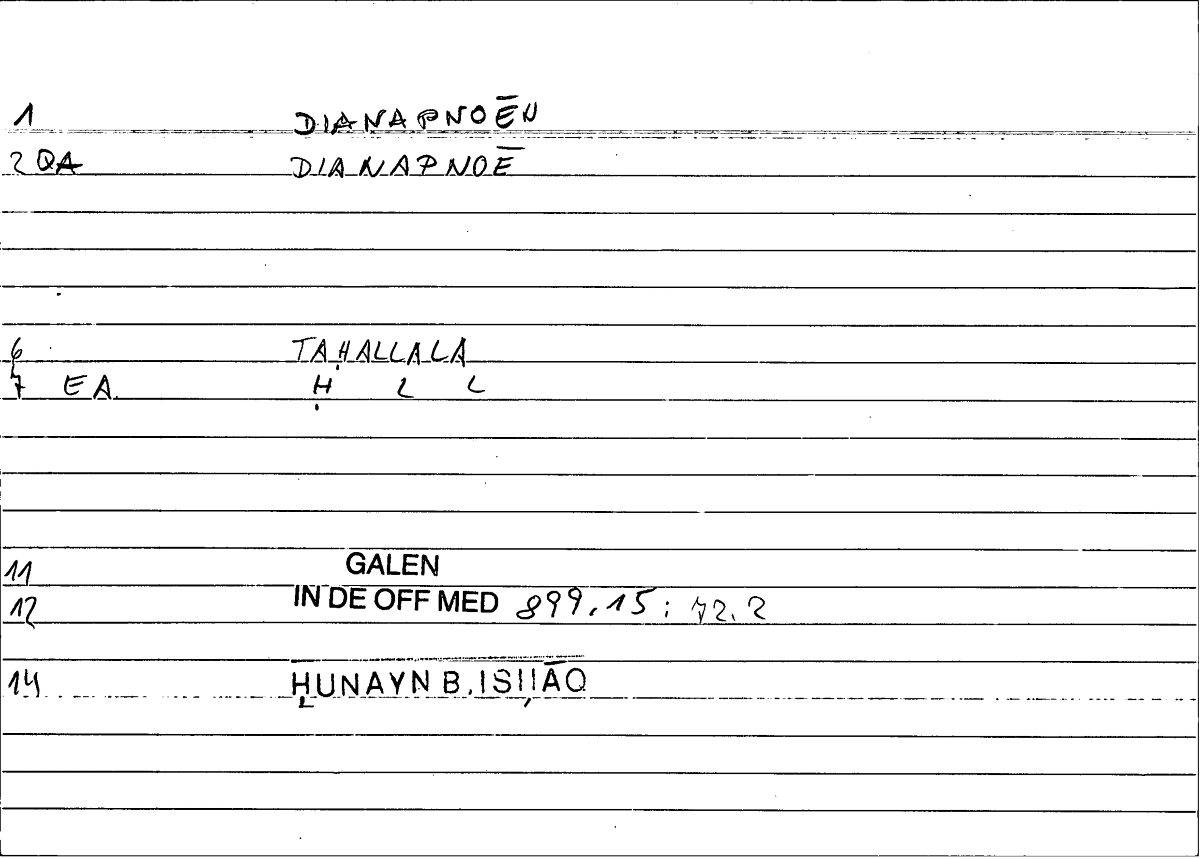 1 DIANAPNOĒN
2 QA DIANAPNOĒ
6 TAḤALLALA
7 EA Ḥ L L
11 GALEN
12 IN DE OFF MED 899.15 ; 72.2
14 ḤUNAYN B. ISḤĀQ